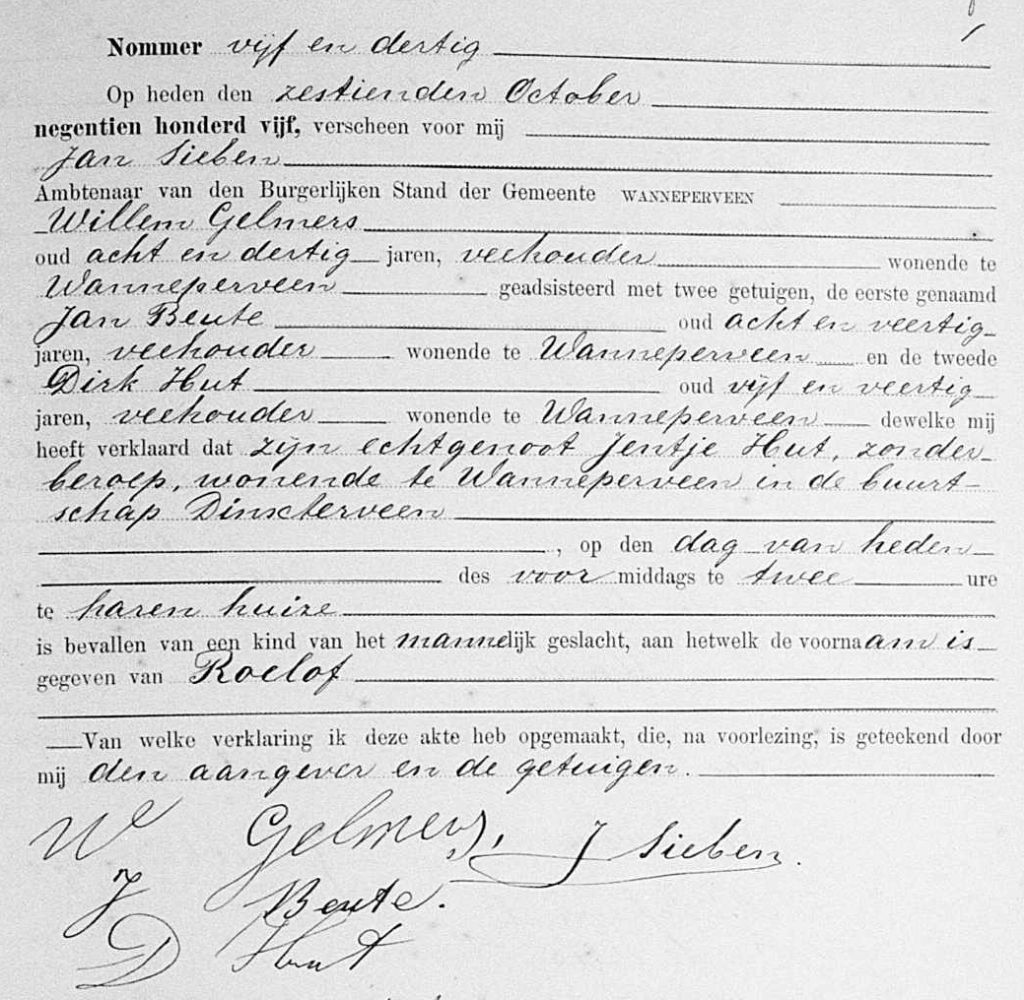 Nommer vijf en dertig
Op heden den zestienden October
negentien honderd vijf, verscheen voor mij
Jan Sieben
Ambtenaar van den Burgerlijken Stand der Gemeente WANNEPERVEEN
Willem Gelmers
oud acht en dertig jaren, veehouder wonende te
Wanneperveen geadsisteerd met twee getuigen, de eerste genaamd
Jan Beute oud acht en veertig
jaren, veehouder wonende te Wanneperveen en de tweede
Dirk Hut oud vijf en veertig
jaren, veehouder wonende te Wanneperveen dewelke mij
heeft verklaard dat zijn echtgenoot Jentje Hut, zonder
beroep, wonende te Wanneperveen in de buurt-
schap Dinxterveen
, op den dag van heden
des voor middags te twee ure
te haren huize
is bevallen van een kind van het mannelijk geslacht, aan hetwelk de voornaam is
gegeven van Roelof
Van welke verklaring ik deze akte heb opgemaakt, die, na voorlezing, is geteekend door
mij den aangever en de getuigen.
W Gelmers, J Sieben.
J Beute.
D Hut